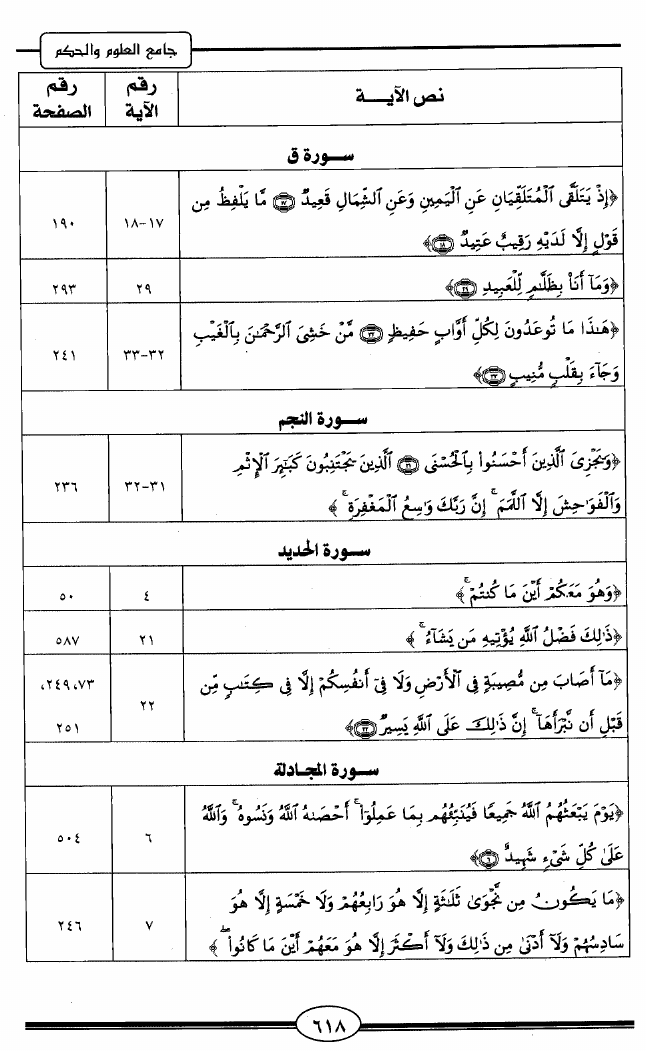 جامع العلوم والحكم
نص الآيـــة رقم الآية رقم الصفحة
ســورة ق
﴿إِذْ يَتَلَقَّى الْمُتَلَقِّيَانِ عَنِ الْيَمِينِ وَعَنِ الشِّمَالِ قَعِيدٌ ۝١٧ مَّا يَلْفِظُ مِن
قَوْلٍ إِلَّا لَدَيْهِ رَقِيبٌ عَتِيدٌ ۝١٨﴾ ١٧-١٨ ١٩٠
﴿وَمَآ أَنَا۠ بِظَلَّٰمٍ لِّلْعَبِيدِ ۝٢٩﴾ ٢٩ ٢٩٣
﴿هَٰذَا مَا تُوعَدُونَ لِكُلِّ أَوَّابٍ حَفِيظٍ ۝٣٢ مَّنْ خَشِيَ الرَّحْمَٰنَ بِالْغَيْبِ
وَجَآءَ بِقَلْبٍ مُّنِيبٍ ۝٣٣﴾ ٣٢-٣٣ ٢٤١
ســورة النجم
﴿وَيَجْزِيَ الَّذِينَ أَحْسَنُوا۟ بِالْحُسْنَى ۝٣١ الَّذِينَ يَجْتَنِبُونَ كَبَٰٓئِرَ الْإِثْمِ
وَالْفَوَٰحِشَ إِلَّا اللَّمَمَ ۚ إِنَّ رَبَّكَ وَٰسِعُ الْمَغْفِرَةِ ۚ﴾ ٣١-٣٢ ٢٣٦
ســورة الحديد
﴿وَهُوَ مَعَكُمْ أَيْنَ مَا كُنتُمْ ۚ﴾ ٤ ٥٠
﴿ذَٰلِكَ فَضْلُ اللَّهِ يُؤْتِيهِ مَن يَشَآءُ ۚ﴾ ٢١ ٥٨٧
﴿مَآ أَصَابَ مِن مُّصِيبَةٍ فِي الْأَرْضِ وَلَا فِىٓ أَنفُسِكُمْ إِلَّا فِي كِتَٰبٍ مِّن
قَبْلِ أَن نَّبْرَأَهَآ ۚ إِنَّ ذَٰلِكَ عَلَى اللَّهِ يَسِيرٌ ۝٢٢﴾ ٢٢ ٧٣، ٢٤٩، ٢٥١
ســورة المجـادلة
﴿يَوْمَ يَبْعَثُهُمُ اللَّهُ جَمِيعًا فَيُنَبِّئُهُم بِمَا عَمِلُوٓا۟ ۚ أَحْصَىٰهُ اللَّهُ وَنَسُوهُ ۚ وَاللَّهُ
عَلَىٰ كُلِّ شَىْءٍ شَهِيدٌ ۝٦﴾ ٦ ٥٠٤
﴿مَا يَكُونُ مِن نَّجْوَىٰ ثَلَٰثَةٍ إِلَّا هُوَ رَابِعُهُمْ وَلَا خَمْسَةٍ إِلَّا هُوَ
سَادِسُهُمْ وَلَآ أَدْنَىٰ مِن ذَٰلِكَ وَلَآ أَكْثَرَ إِلَّا هُوَ مَعَهُمْ أَيْنَ مَا كَانُوا۟ ۖ﴾ ٧ ٢٤٦
٦١٨